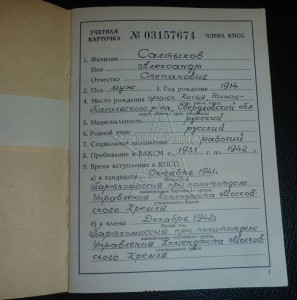 УЧЕТНАЯ КАРТОЧКА № 03157674 ЧЛЕНА КПСС
1. Фамилия Салтыков
Имя Александр
Отчество Степанович
2. Пол муж. 3. Год рождения 1914
4. Место рождения прииск Косья, Нижне-
Тагильского р-на, Свердловской обл.
5. Национальность русский
6. Родной язык русский
7. Социальное положение рабочий
8. Пребывание в ВЛКСМ с 1931 г. по 1942 г.
9. Время вступления в КПСС
а) в кандидаты Октябрь 1941г.
Парткомиссия при политотделе
Управления Коменданта Москов-
ского Кремля
б) в члены Декабрь 1942г.
Парткомиссия при политотделе
Управления Коменданта Москов-
ского Кремля
1